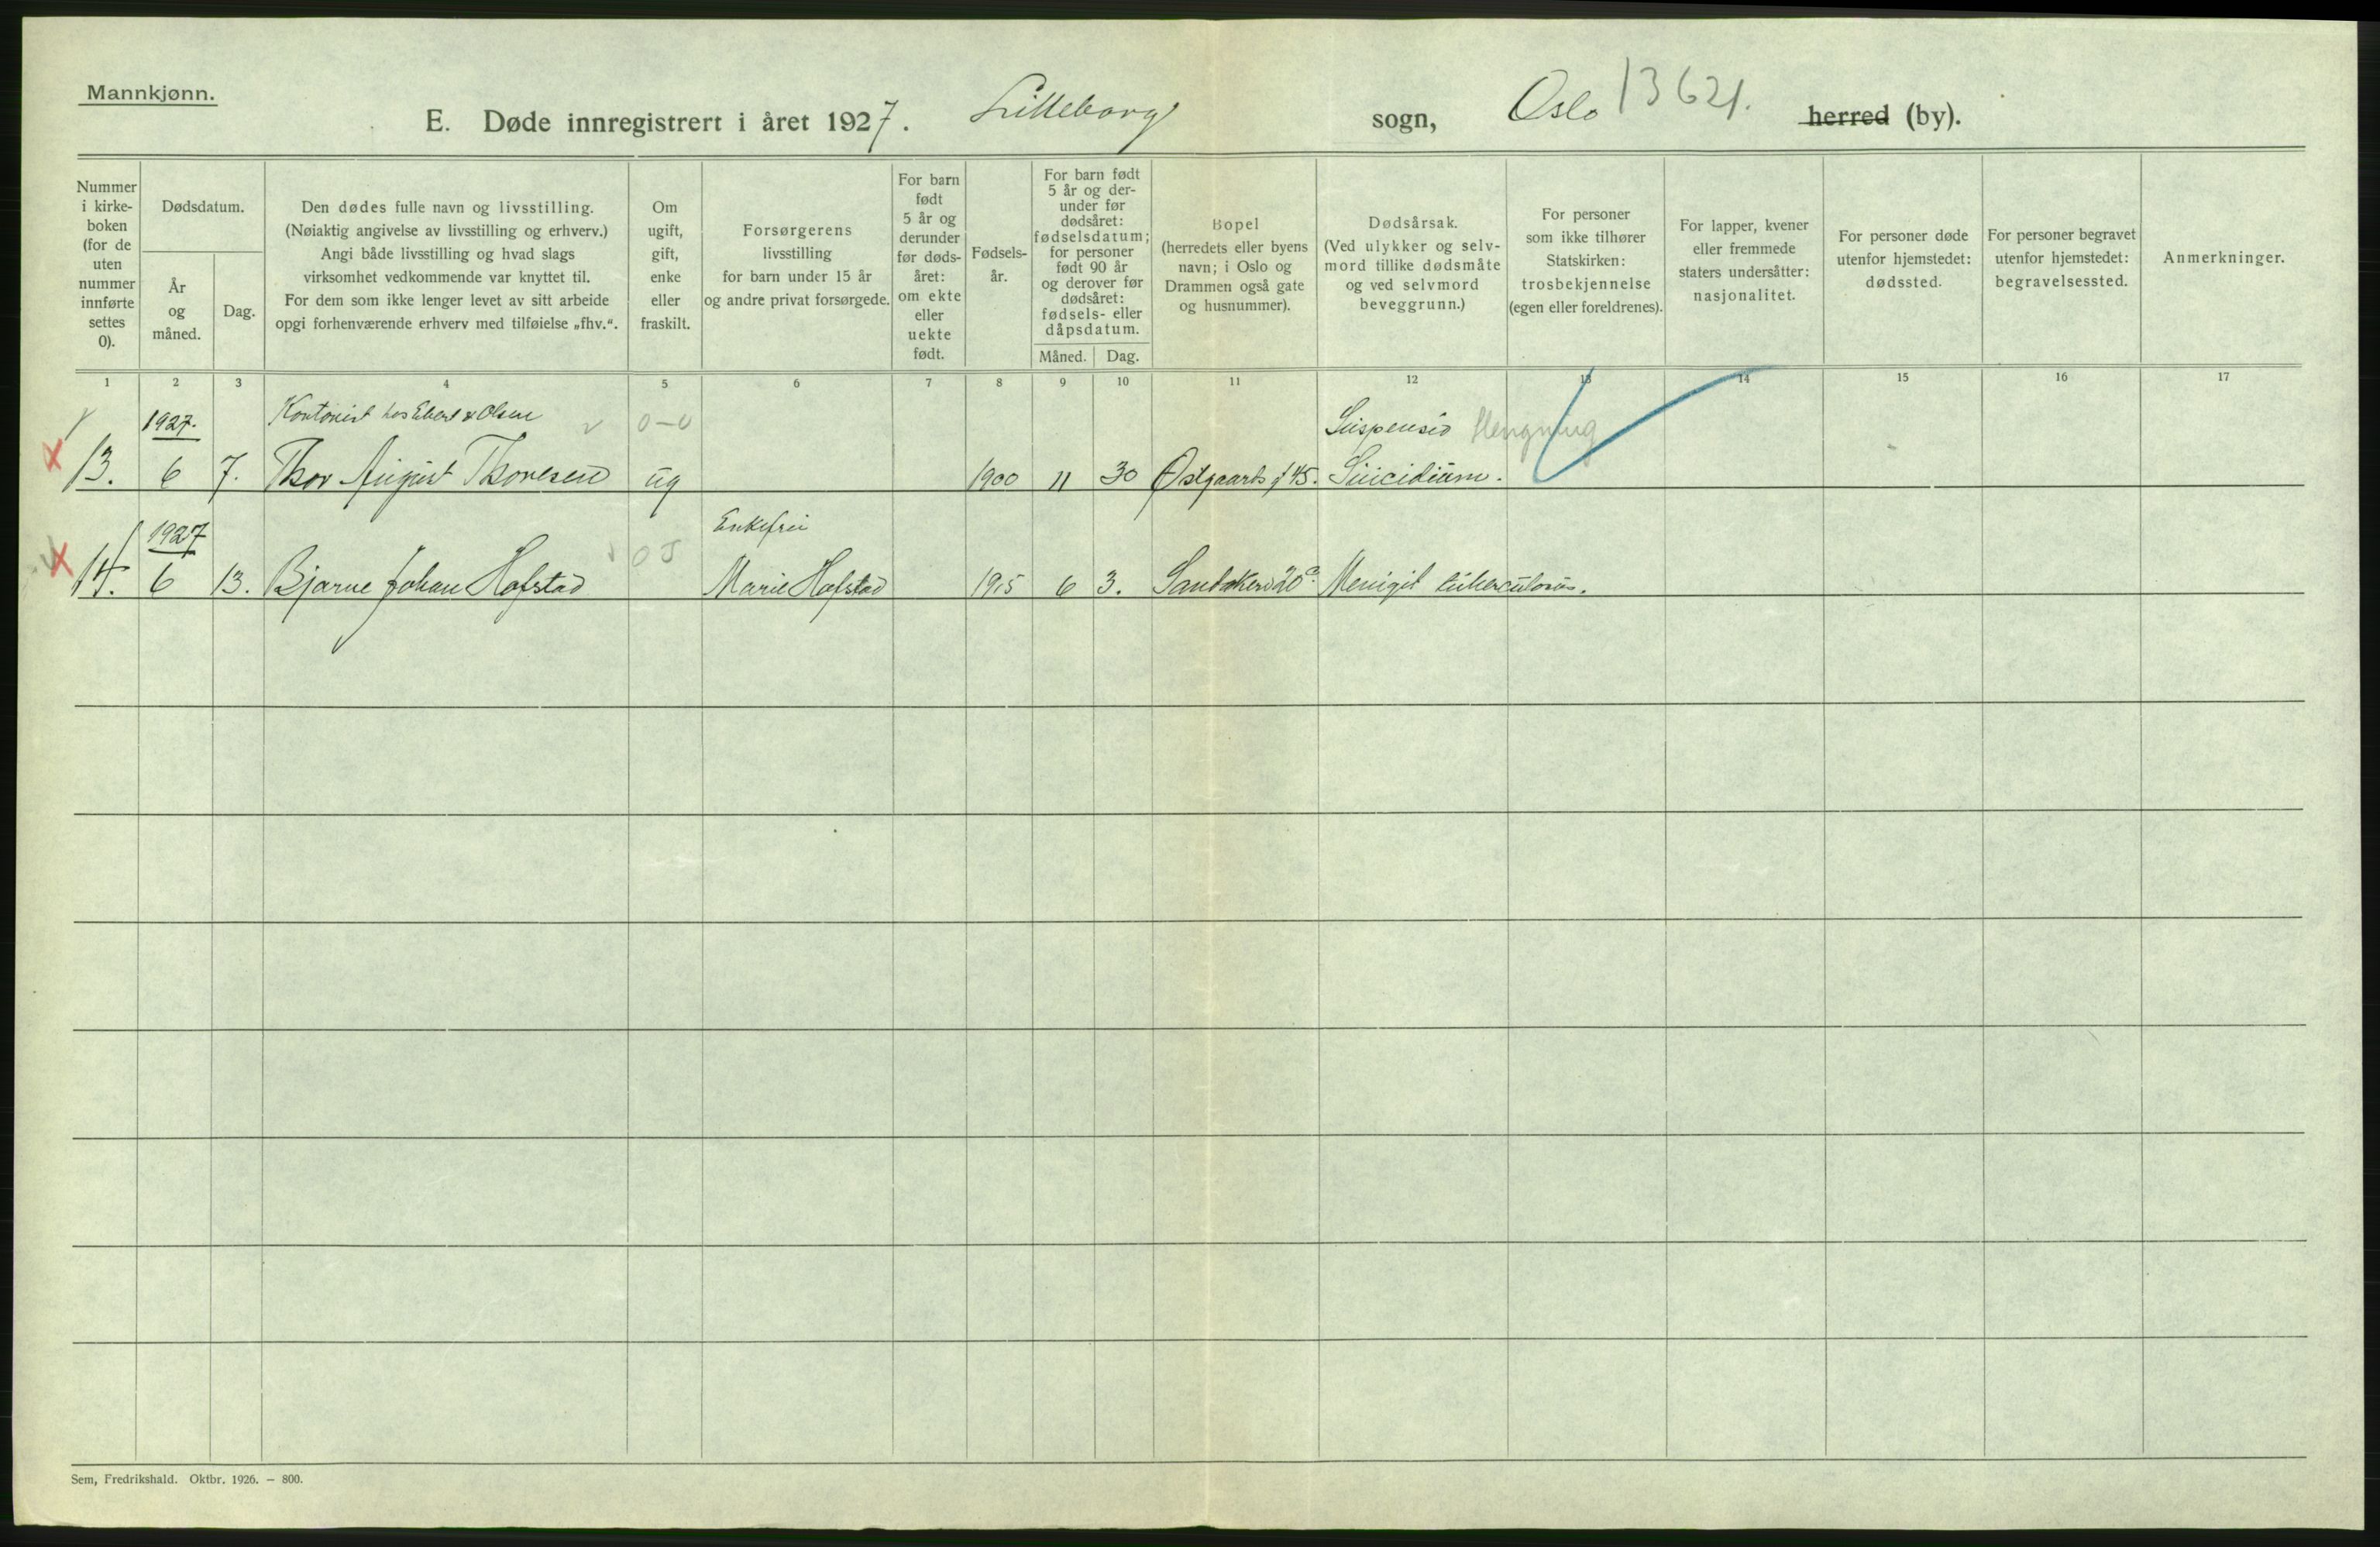 Mannkjønn.
E. Døde innregistrert i året 1927. Lilleborg sogn, Oslo 13621. herred (by).
Nummer i kirke-boken (for de uten nummer innførte settes 0).
Dødsdatum.
År og måned.
Dag.
Den dødes fulle navn og livsstilling.
(Nøiaktig angivelse av livsstilling og erhverv.)
Angi både livsstilling og hvad slags
virksomhet vedkommende var knyttet til.
For dem som ikke lenger levet av sitt arbeide
opgi forhenværende erhverv med tilføielse „fhv.“.
Om ugift, gift, enke eller fraskilt.
Forsørgerens
livsstilling
for barn under 15 år
og andre privat forsørgede.
For barn født 5 år og derunder før døds-året: om ekte eller uekte født.
Fødsels-år.
For barn født 5 år og der-under før dødsåret: fødselsdatum; for personer født 90 år og derover før dødsåret: fødsels- eller dåpsdatum.
Måned. Dag.
Bopel
(herredets eller byens
navn; i Oslo og
Drammen også gate
og husnummer).
Dødsårsak.
(Ved ulykker og selv-
mord tillike dødsmåte
og ved selvmord
beveggrunn.)
For personer
som ikke tilhører
Statskirken:
trosbekjennelse
(egen eller foreldrenes).
For lapper, kvener
eller fremmede
staters undersåtter:
nasjonalitet.
For personer døde
utenfor hjemstedet:
dødssted.
For personer begravet
utenfor hjemstedet:
begravelsessted.
Anmerkninger.
1 2 3 4 5 6 7 8 9 10 11 12 13 14 15 16 17
1927. Kontorist hos Ebert & Olsen 0-0 Suspensio Hengning
13. 6 7. Thor August Thoresen ug 1900 11 30 Østgaards g 45. Suicidium.
1927 Enkefru
14. 6 13. Bjarne Johan Hofstad Marie Hofstad 1915 6 3. Sandakerv 20 Menigit tuberculosus.
Sem, Fredrikshald. Oktbr. 1926. — 800.